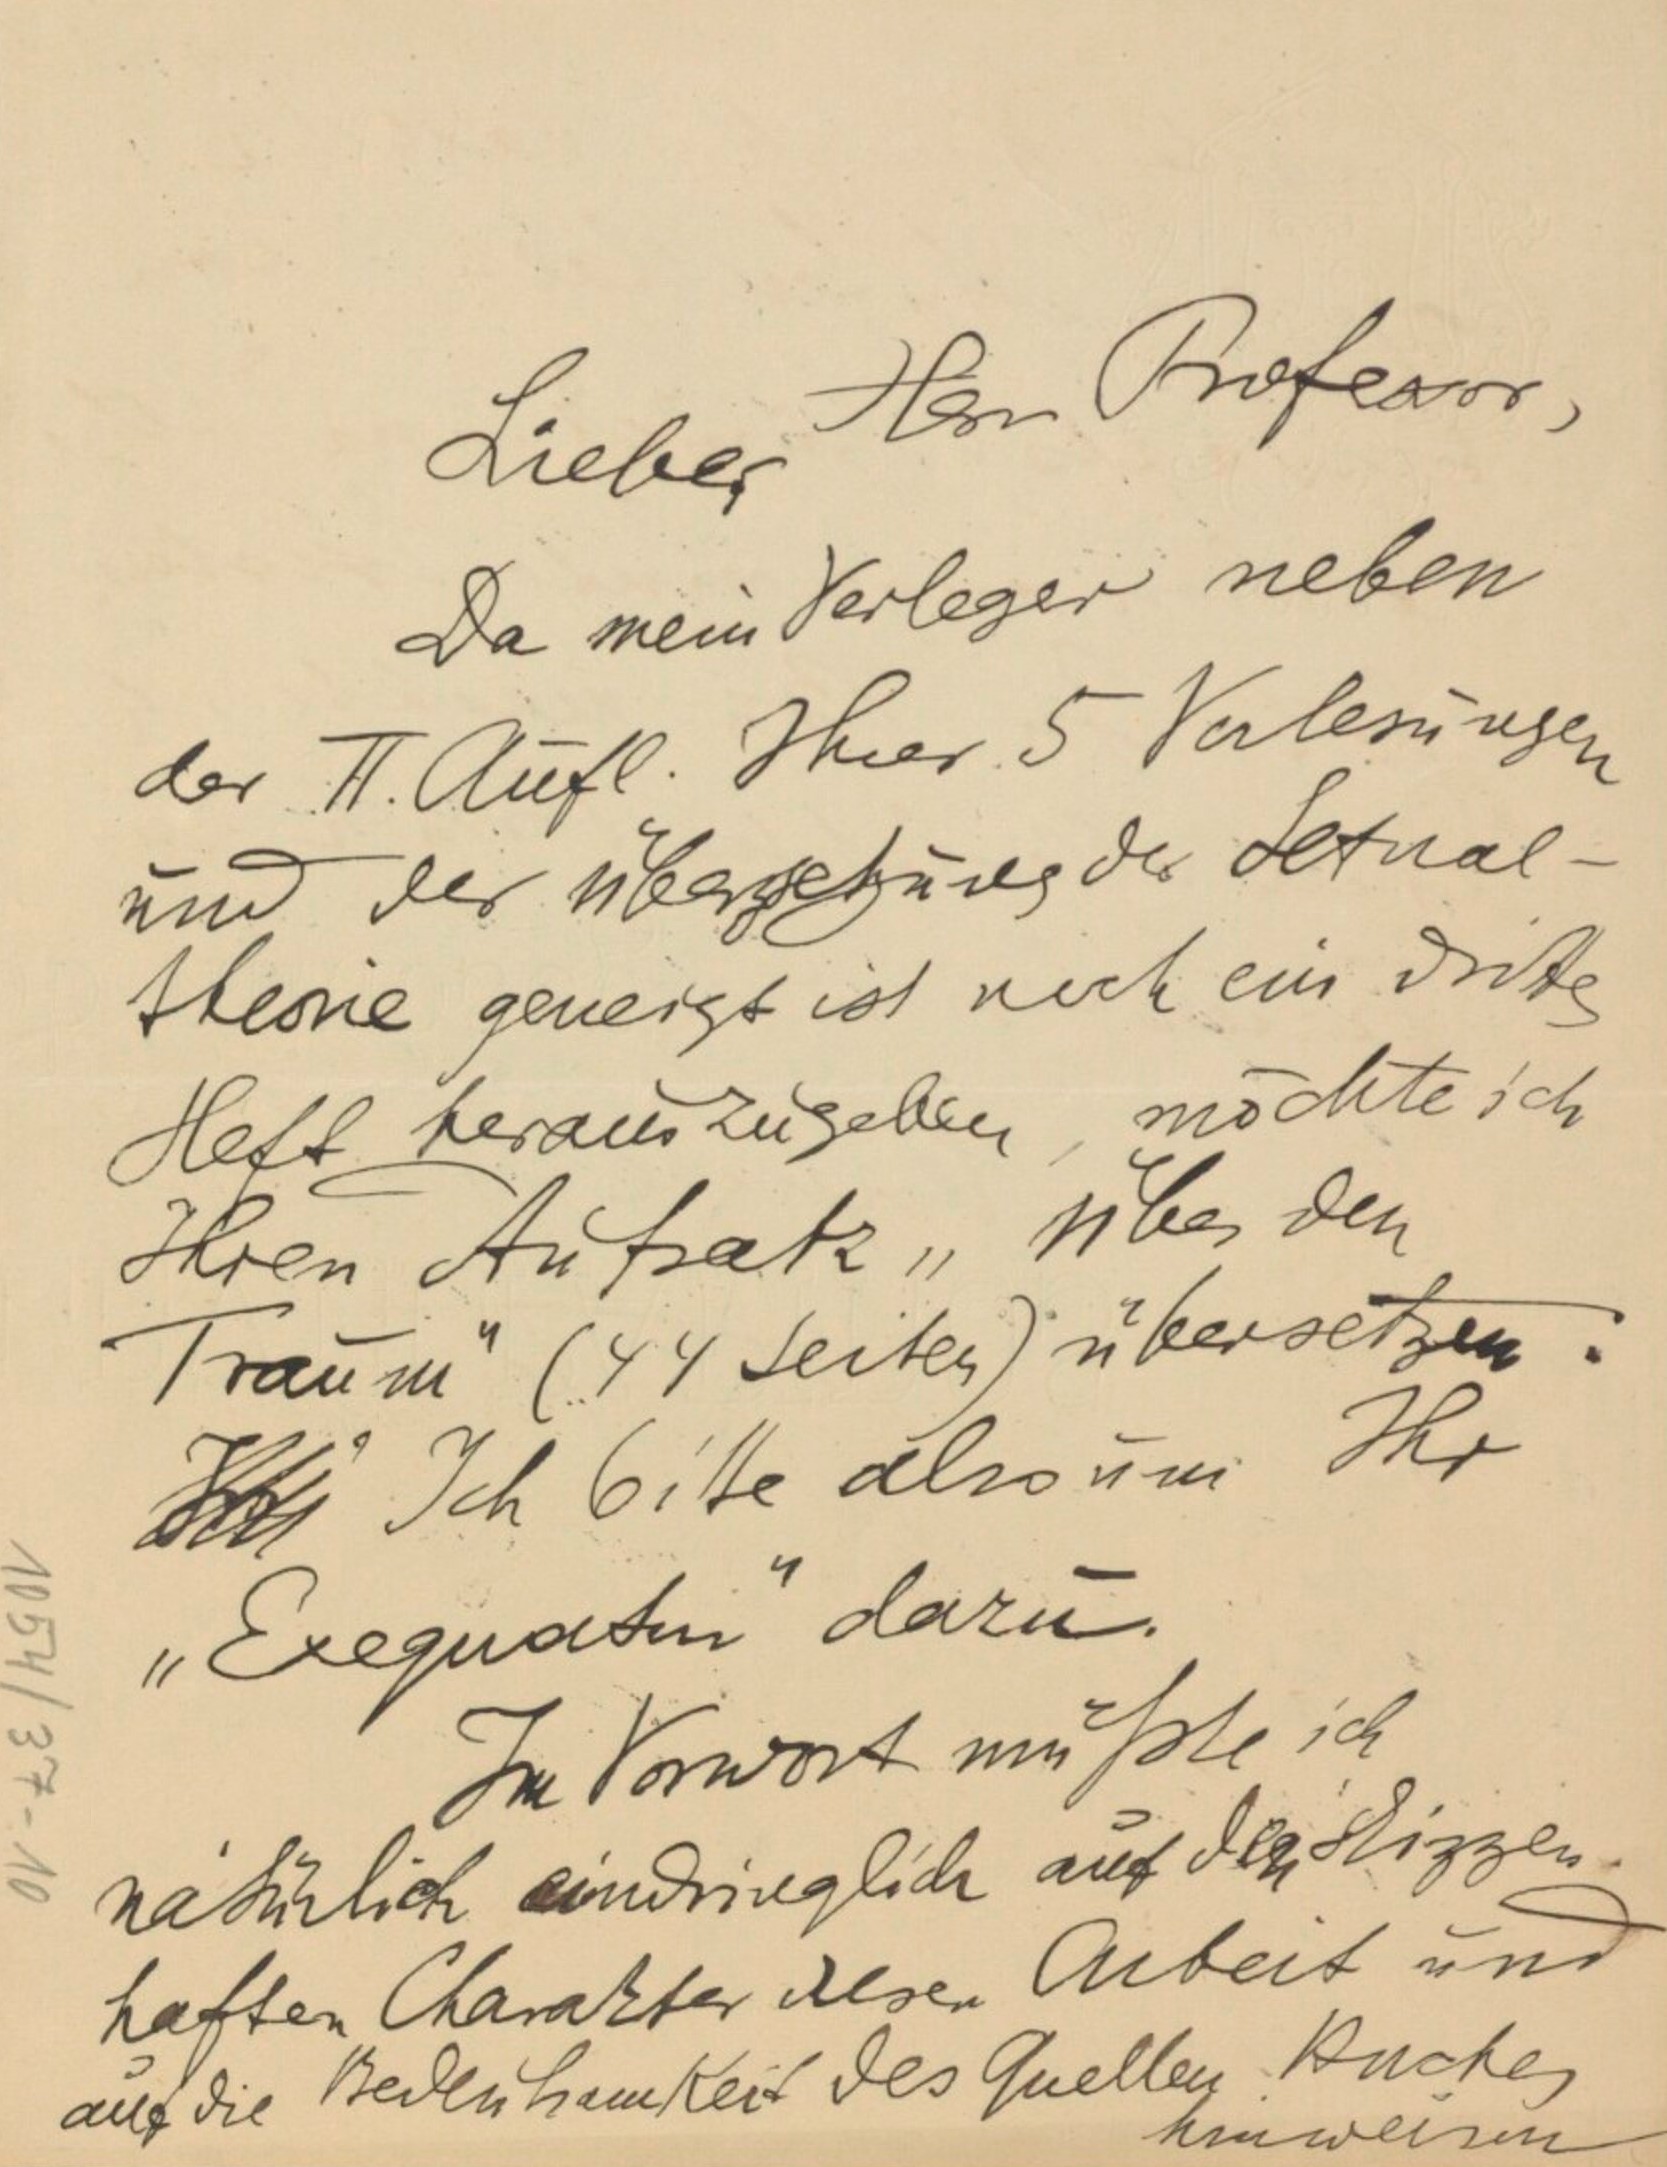 Lieber Herr Professor,
Da mein Verleger neben
der II. Aufl. Ihrer 5 Vorlesungen
und der Übersetzung der Sexual-
theorie geneigt ist noch ein drittes
Heft herauszugeben, möchte ich
Ihren Aufsatz „Über den
Traum“ (44 Seiten) übersetzen.
Ich bitte also um Ihr
„Exequatur“ dazu.
Im Vorwort müßte ich
natürlich eindringlich auf den skizzen-
haften Charakter dieser Arbeit und
auf die Bedeutsamkeit des Quellen Buches
hinweisen
10541/37-10